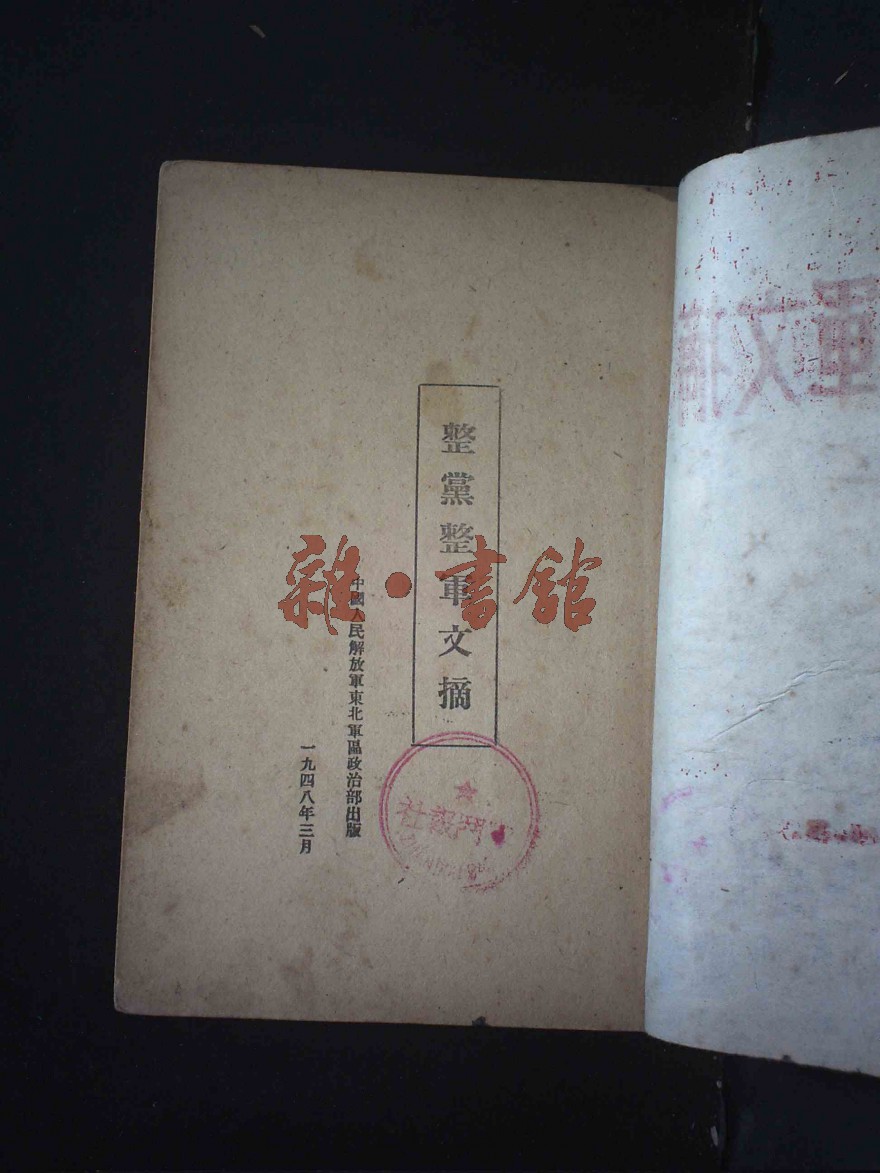 整黨整軍文摘
中國人民解放軍東北軍區政治部出版
一九四八年三月
雜·書館
報社
軍文摘